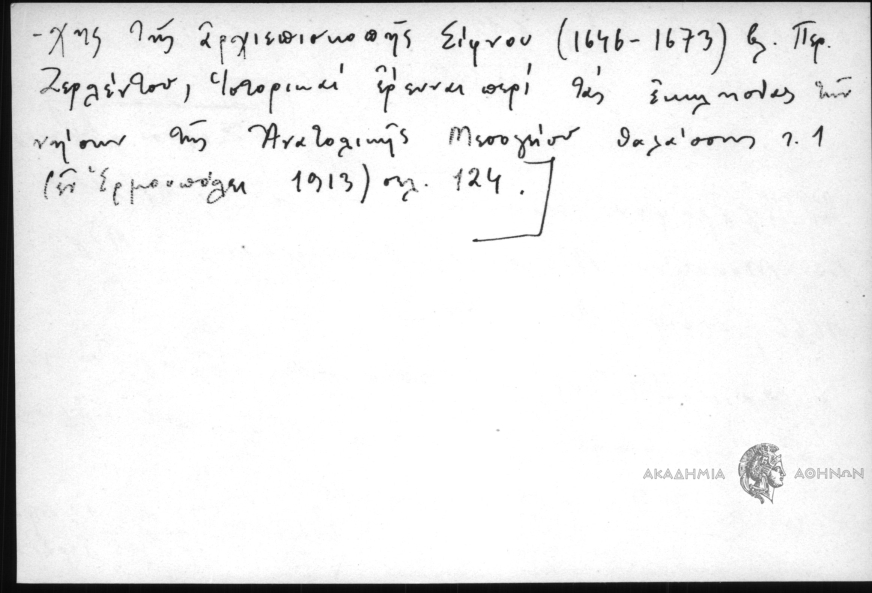 -χης τῆς ἀρχιεπισκοπῆς Σίφνου (1646-1673) βλ. Περ.
Ζερλέντου, Ἱστορικαί ἔρευναι περί τάς ἐκκλησίας τῶν
νήσων τῆς Ἀνατολικῆς Μεσογείου θαλάσσης τ. 1
(ἐν Ἑρμουπόλει 1913) σελ. 124.]
ΑΚΑΔΗΜΙΑ ΑΘΗΝΩΝ